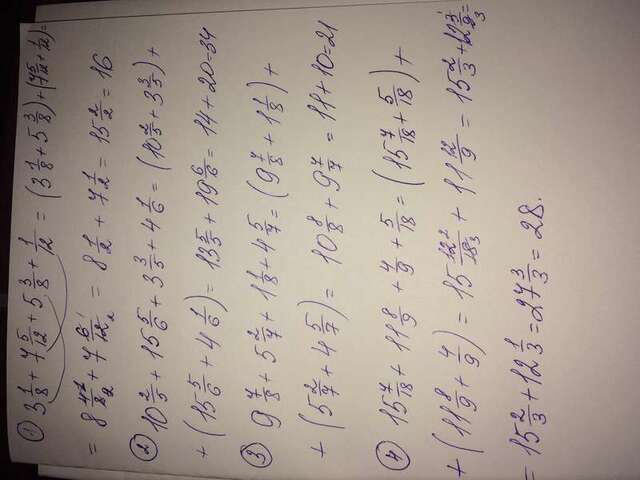 ① 3 1/8 + 7 5/12 + 5 3/8 + 1/12 = (3 1/8 + 5 3/8) + (7 5/12 + 1/12) =
= 8 4/8 1/2 + 7 6/12 1/2 = 8 1/2 + 7 1/2 = 15 2/2 = 16
② 10 2/5 + 15 5/6 + 3 3/5 + 4 1/6 = (10 2/5 + 3 3/5) +
+ (15 5/6 + 4 1/6) = 13 5/5 + 19 6/6 = 14 + 20 = 34
③ 9 7/8 + 5 2/7 + 1 1/8 + 4 5/7 = (9 7/8 + 1 1/8) +
+ (5 2/7 + 4 5/7) = 10 8/8 + 9 7/7 = 11 + 10 = 21
④ 15 7/18 + 11 8/9 + 4/9 + 5/18 = (15 7/18 + 5/18) +
+ (11 8/9 + 4/9) = 15 12/18 2/3 + 11 12/9 = 15 2/3 + 12 3/9 1/3 =
= 15 2/3 + 12 1/3 = 27 3/3 = 28.